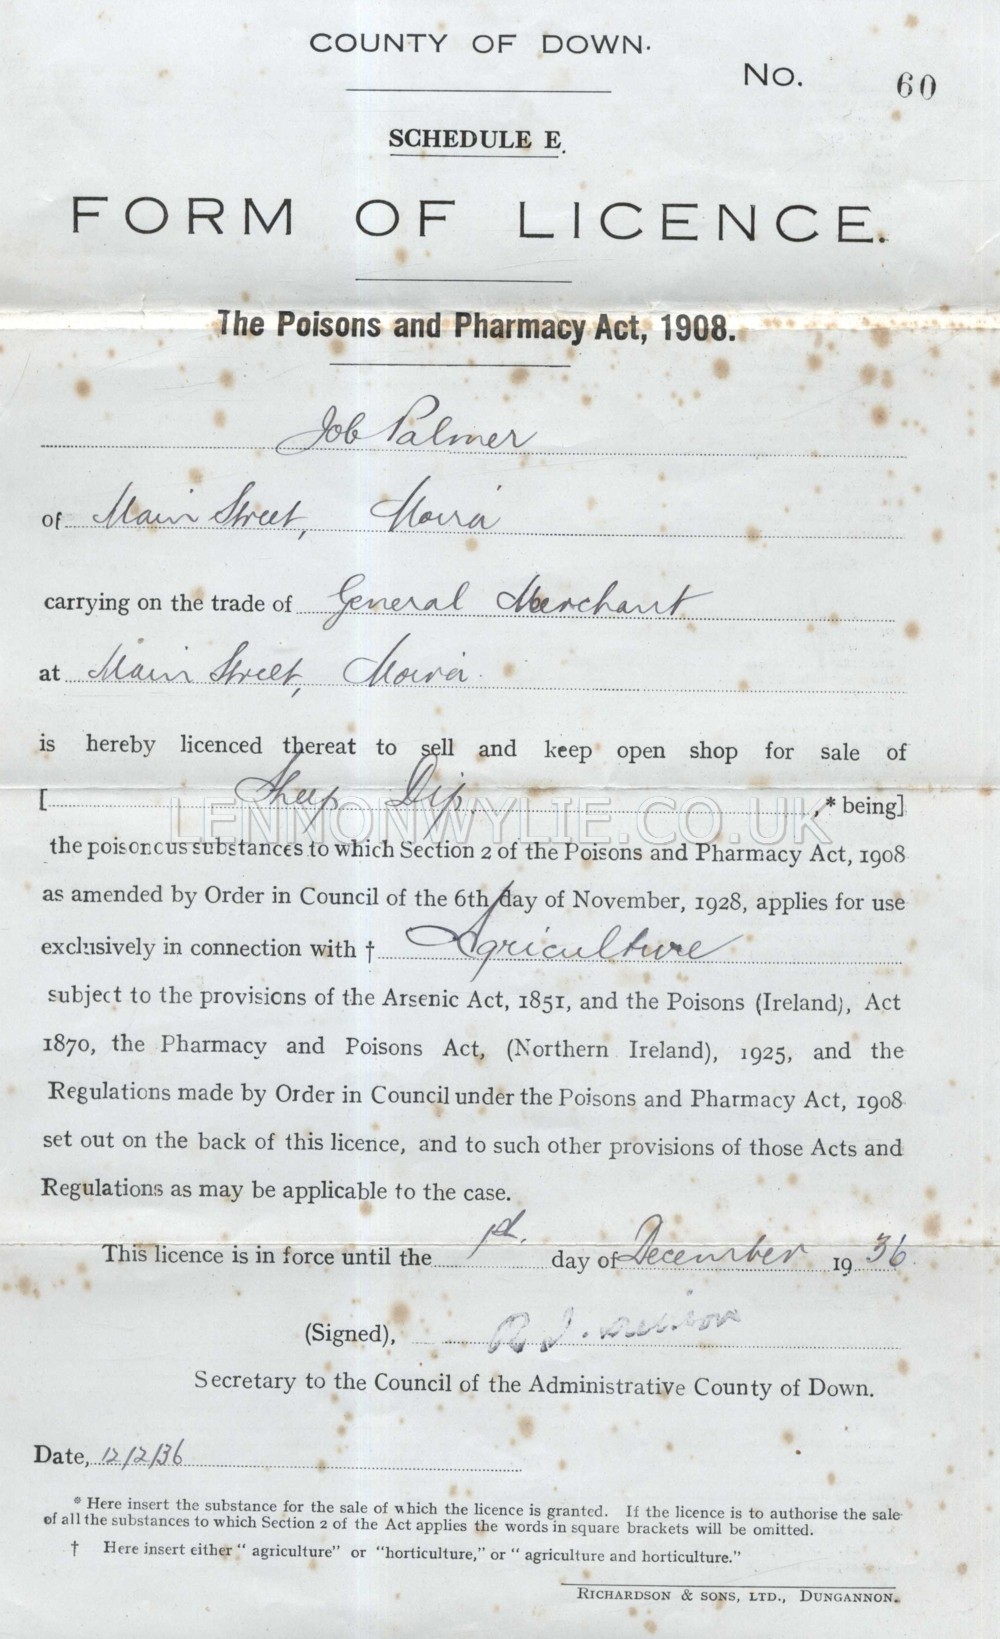 COUNTY OF DOWN.
No. 60
SCHEDULE E.
FORM OF LICENCE.
The Poisons and Pharmacy Act, 1908.
Job Palmer
of Main Street, Moira
carrying on the trade of General Merchant
at Main Street, Moira.
is hereby licenced thereat to sell and keep open shop for sale of
[ Sheep Dip. ,* being]
LENNONWYLIE.CO.UK
the poisoncus substances to which Section 2 of the Poisons and Pharmacy Act, 1908
as amended by Order in Council of the 6th day of November, 1928, applies for use
exclusively in connection with † Agriculture
subject to the provisions of the Arsenic Act, 1851, and the Poisons (Ireland), Act
1870, the Pharmacy and Poisons Act, (Northern Ireland), 1925, and the
Regulations made by Order in Council under the Poisons and Pharmacy Act, 1908
set out on the back of this licence, and to such other provisions of those Acts and
Regulations as may be applicable to the case.
This licence is in force until the 1st. day of December 1936.
(Signed),
Secretary to the Council of the Administrative County of Down.
Date, 12/2/36
* Here insert the substance for the sale of which the licence is granted. If the licence is to authorise the sale
of all the substances to which Section 2 of the Act applies the words in square brackets will be omitted.
† Here insert either " agriculture" or "horticulture," or " agriculture and horticulture."
RICHARDSON & SONS, LTD., DUNGANNON.